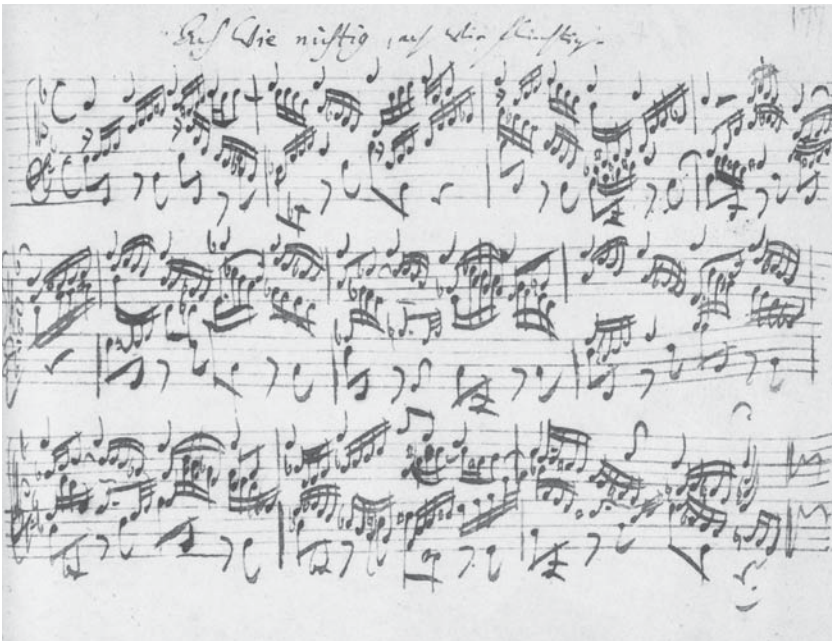 Ach Wie nichtig, ach wie flüchtig.